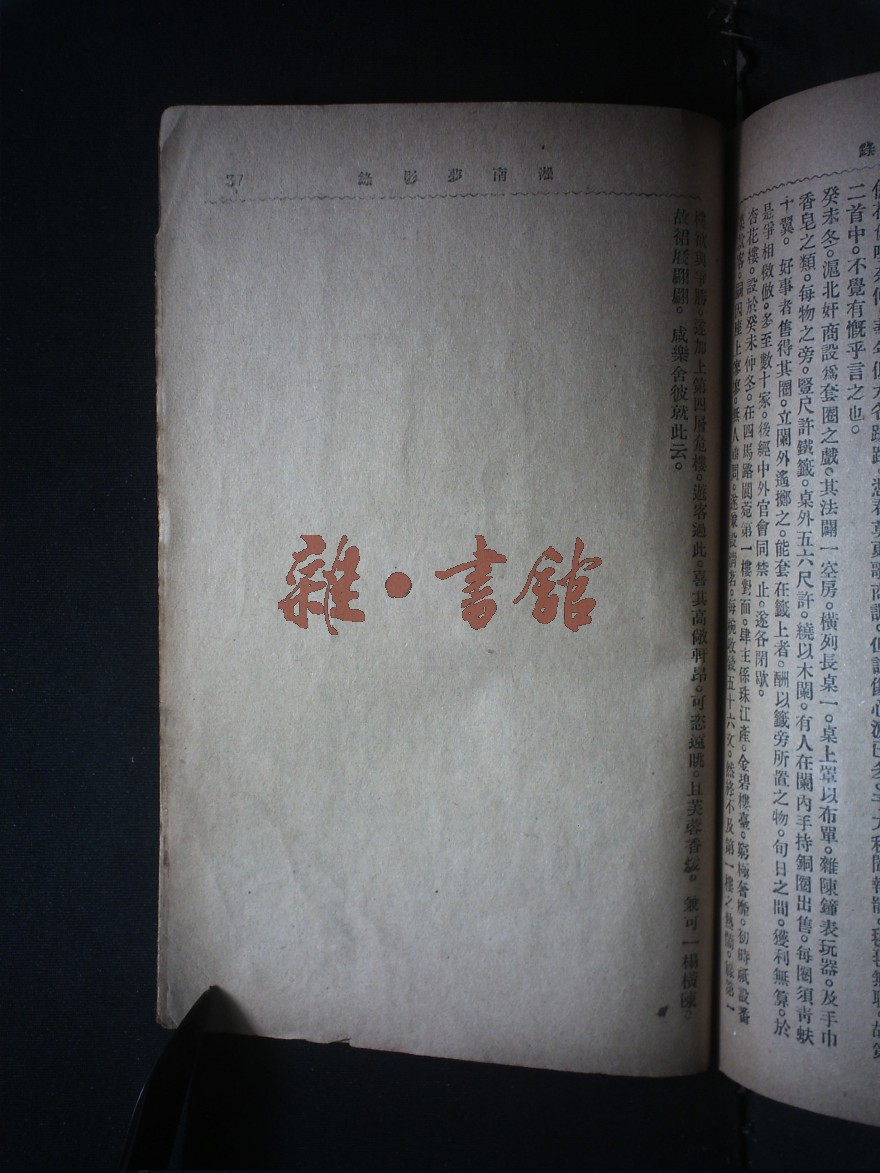 錄
二首中。不覺有慨乎言之也。
癸未冬。滬北奸商設爲套圈之戲。其法闢一空房。橫列長桌一。桌上罩以布單。雜陳鐘表玩器。及手巾
香皂之類。每物之旁。豎尺許鐵籤。桌外五六尺許。繞以木闌。有人在闌內手持銅圈出售。每圈須靑蚨
十翼。好事者售得其圈。立闌外遙擲之。能套在籤上者。酬以籤旁所置之物。旬日之間。獲利無算。於
是爭相傚倣。多至數十家。後經中外官會同禁止。遂各閉歇。
杏花樓。設於癸未仲冬。在四馬路閬苑第一樓對面。肆主係珠江產。金碧樓臺。窮極奢靡。初時祇設番
人 每碗收錢五十六文。然終不及第一樓之熱鬧。
淞南夢影錄
37
樓欲與爭勝。遂加上第四層危樓。遊客過此。喜其高敞軒昂。可恣遠眺。且芙蓉香煖。兼可一榻橫陳。
故裙屐翩翩。咸樂舍彼就此云。
雜·書館